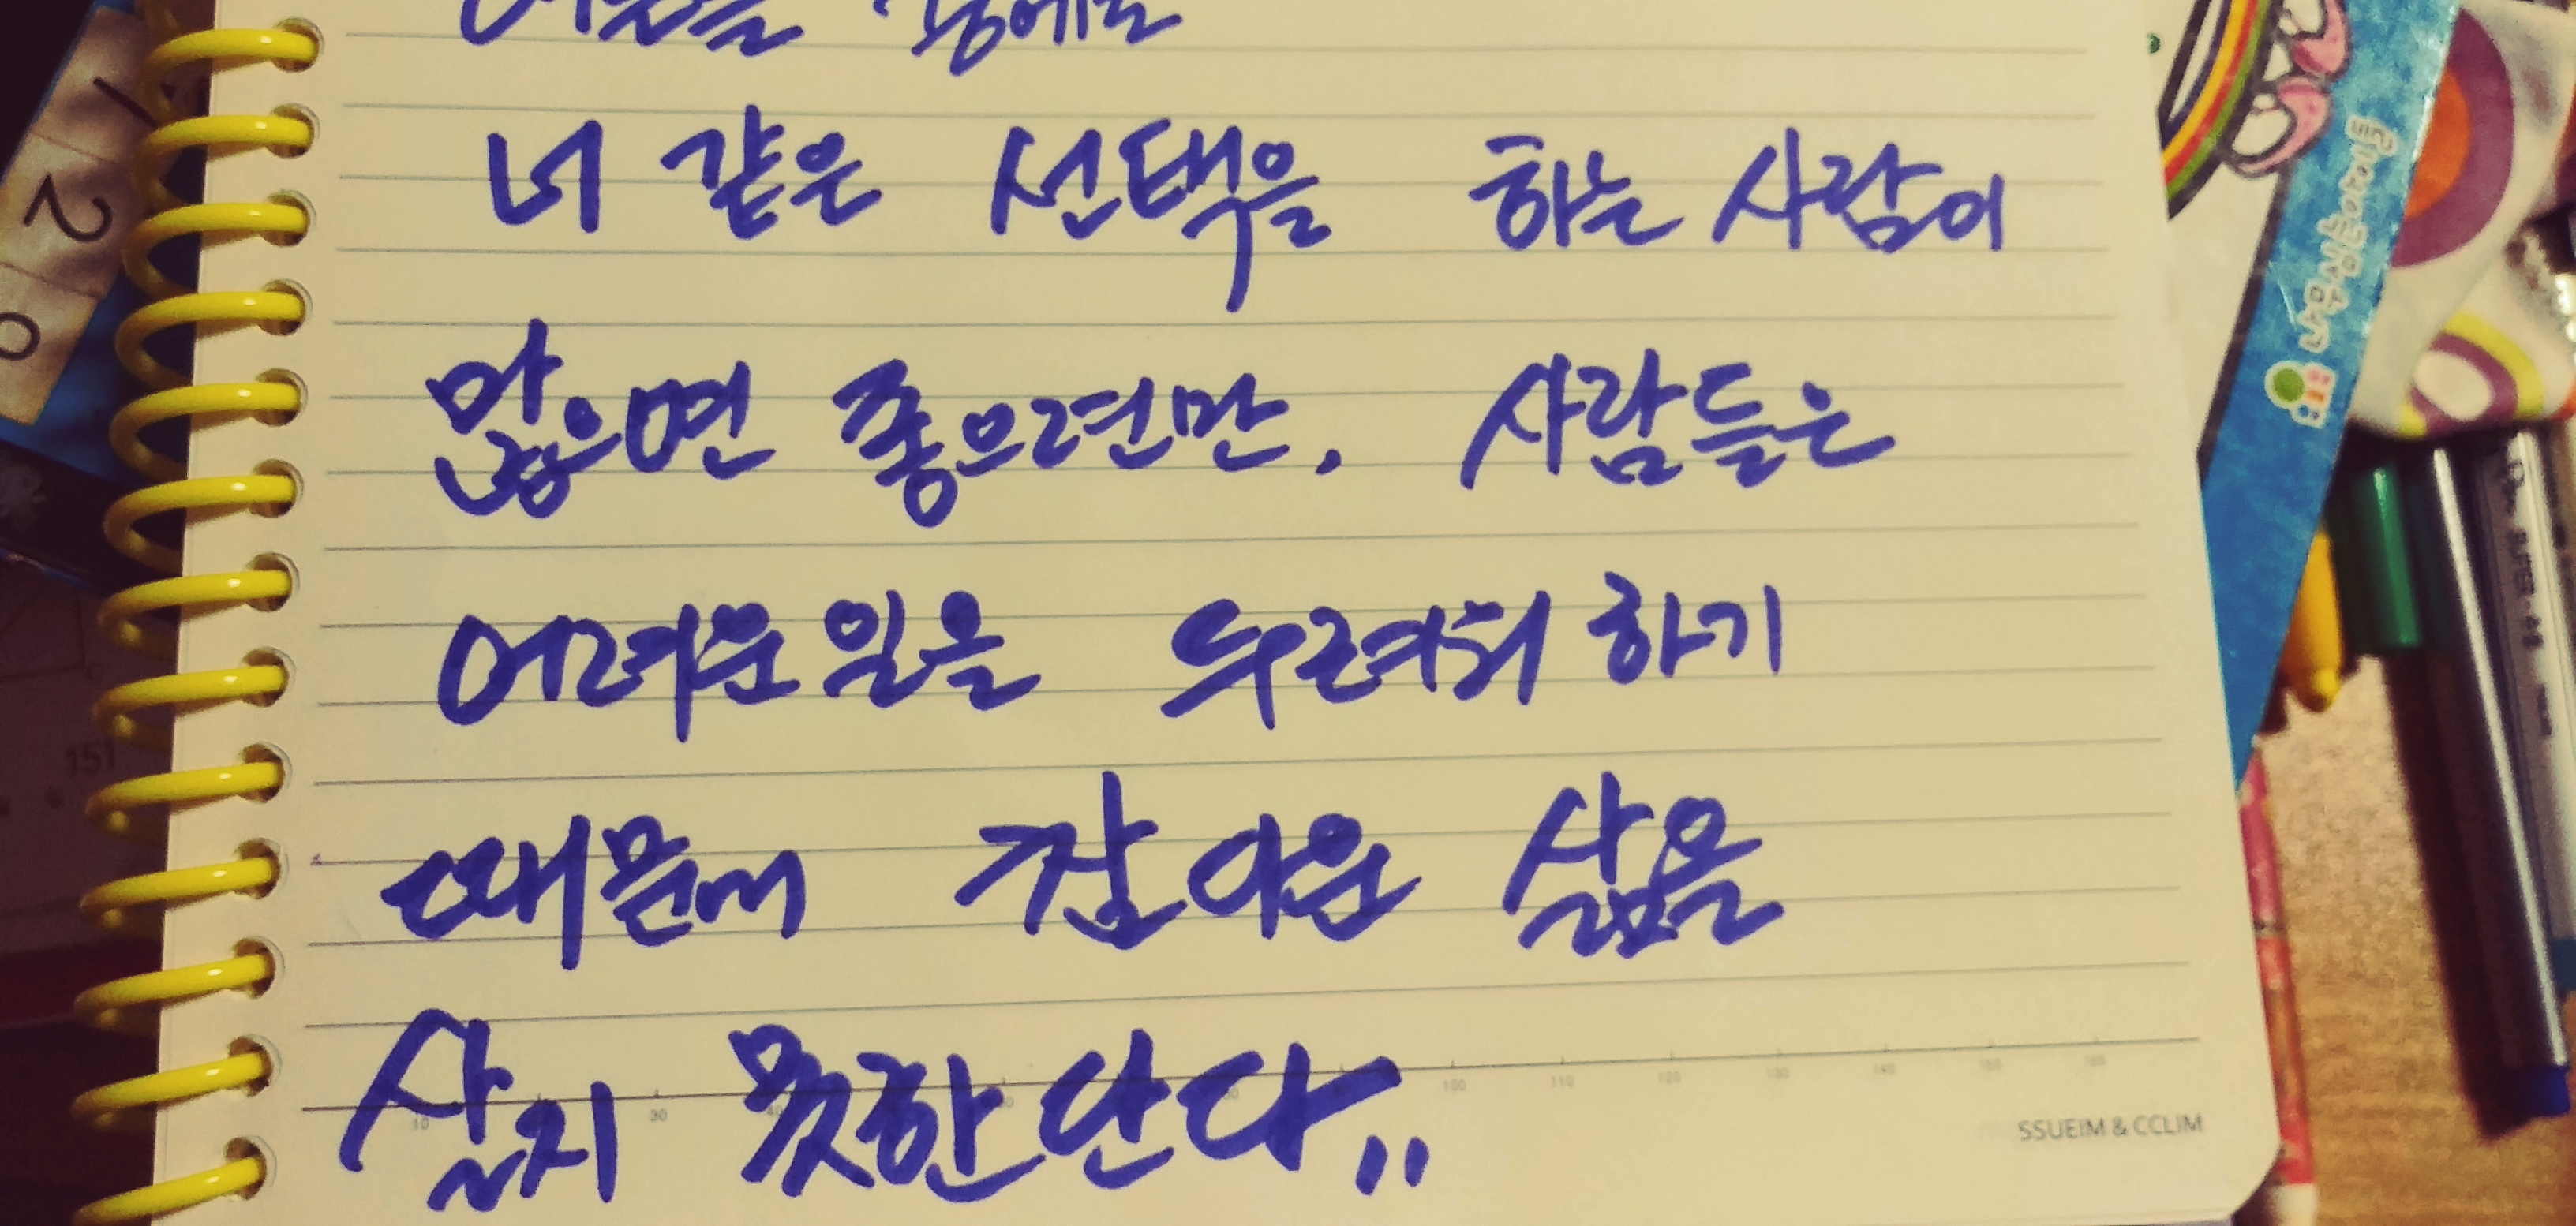 너 같은 선택을 하는 사람이
많으면 좋으련만. 사람들은
어려운일을 두려워 하기
때문에 값어운 삶을
살지 못한단다..
SSUEIM & CCLIM
나무심는아이들
151
2
10
30
100
110
120
130
140